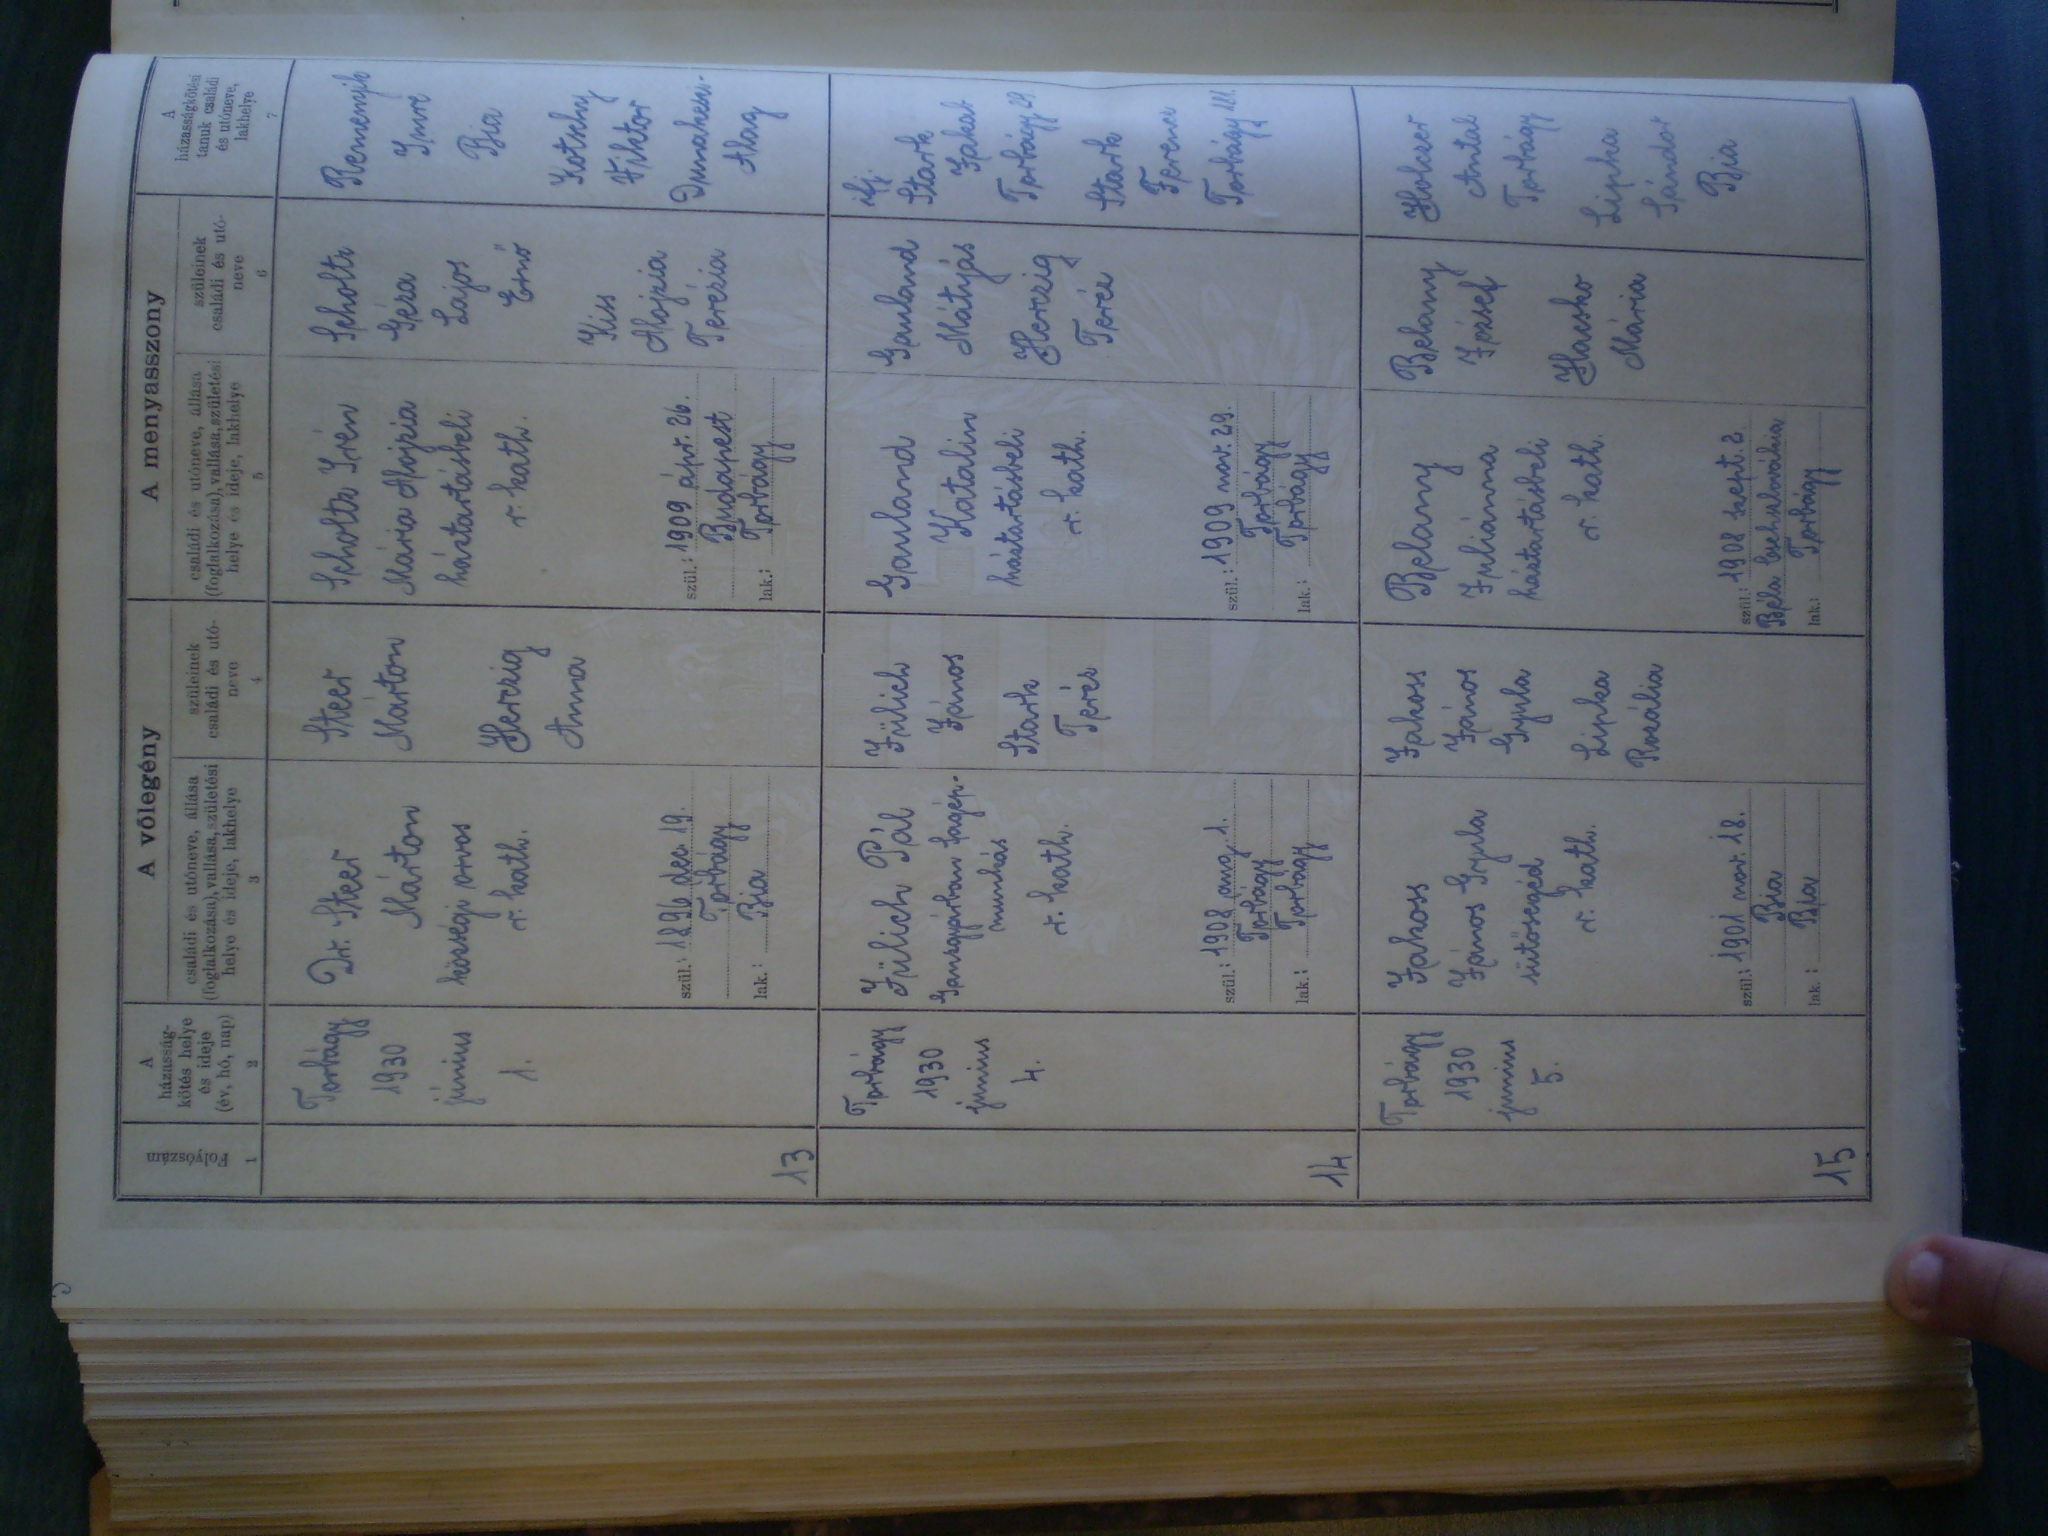 Folyószám
1
A
házasság-
kötés helye
és ideje
(év, hó, nap)
2
A vőlegény
családi és utóneve, állása
(foglalkozása), vallása, születési
helye és ideje, lakhelye
3
szüleinek
családi és utó-
neve
4
A menyasszony
családi és utóneve, állása
(foglalkozása), vallása, születési
helye és ideje, lakhelye
5
szüleinek
családi és utó-
neve
6
A
házasságkötési
tanuk családi
és utóneve,
lakhelye
7
13
Torbágy
1930
június
1.
Dr. Steer
Márton
községi orvos
r. kath.
szül.: 1896 dec. 19.
Torbágy
lak.: Bia
Steer
Márton
Herczig
Anna
Scholtz Irén
Mária Alojzia
háztartásbeli
r. kath.
szül.: 1909 ápr. 26.
Budapest
Torbágy
lak.:
Scholtz
Géza
Lajos
Ernő
Kiss
Alojzia
Terézia
Remenyik
Imre
Bia
Kotschy
Viktor
Dunakeszi-
Alag
14
Torbágy
1930
június
4.
Jülich Pál
Ganzgyárban
munkás
r. kath.
szül.: 1908 aug. 1.
Torbágy
Torbágy
lak.:
Jülich
János
Stark
Teréz
Gauland
Katalin
háztartásbeli
r. kath.
szül.: 1909 nov. 29.
Torbágy
Torbágy
lak.:
Gauland
Mátyás
Herczig
Teréz
ifj.
Stark
Jakab
Torbágy 29.
Stark
Ferenc
Torbágy
15
Torbágy
1930
június
5.
Jakoss
János Gyula
sütősegéd
r. kath.
szül.: 1901 nov. 18.
Bia
Bia
lak.:
Jakoss
János
Gyula
Lipka
Rozália
Belany
Juliánna
háztartásbeli
r. kath.
szül.: 1908 szept. 2.
Béla
Torbágy
lak.:
Belany
József
Hacsko
Mária
Holczer
Antal
Torbágy
Lipka
Sándor
Bia